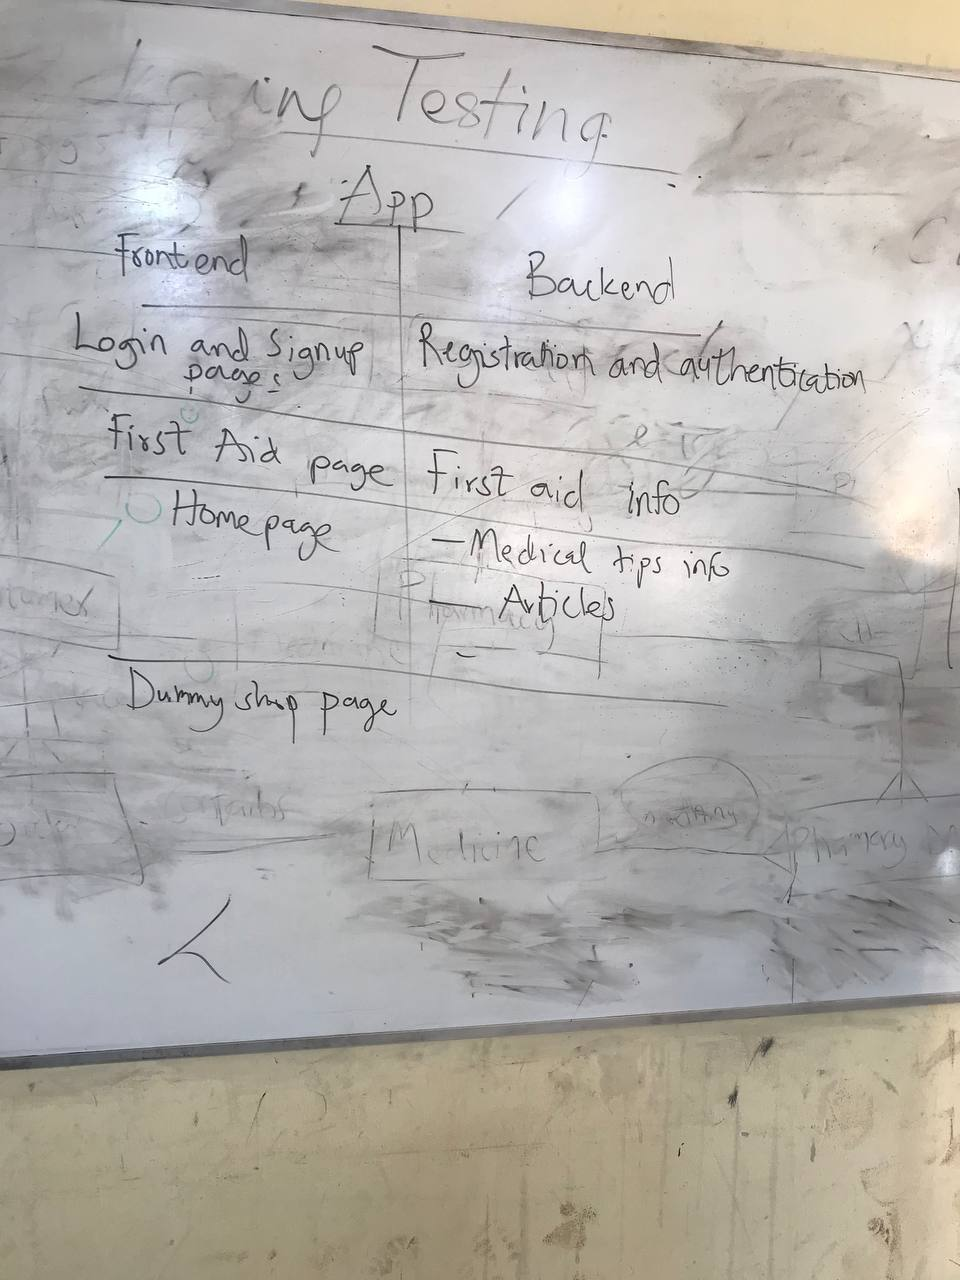 ing Testing
App
Frontend
Backend
Login and Signup
pages
Registration and authentication
First Aid page
First aid info
Homepage
– Medical tips info
– Articles
Pharmacy
Dummy shop page
Medicine